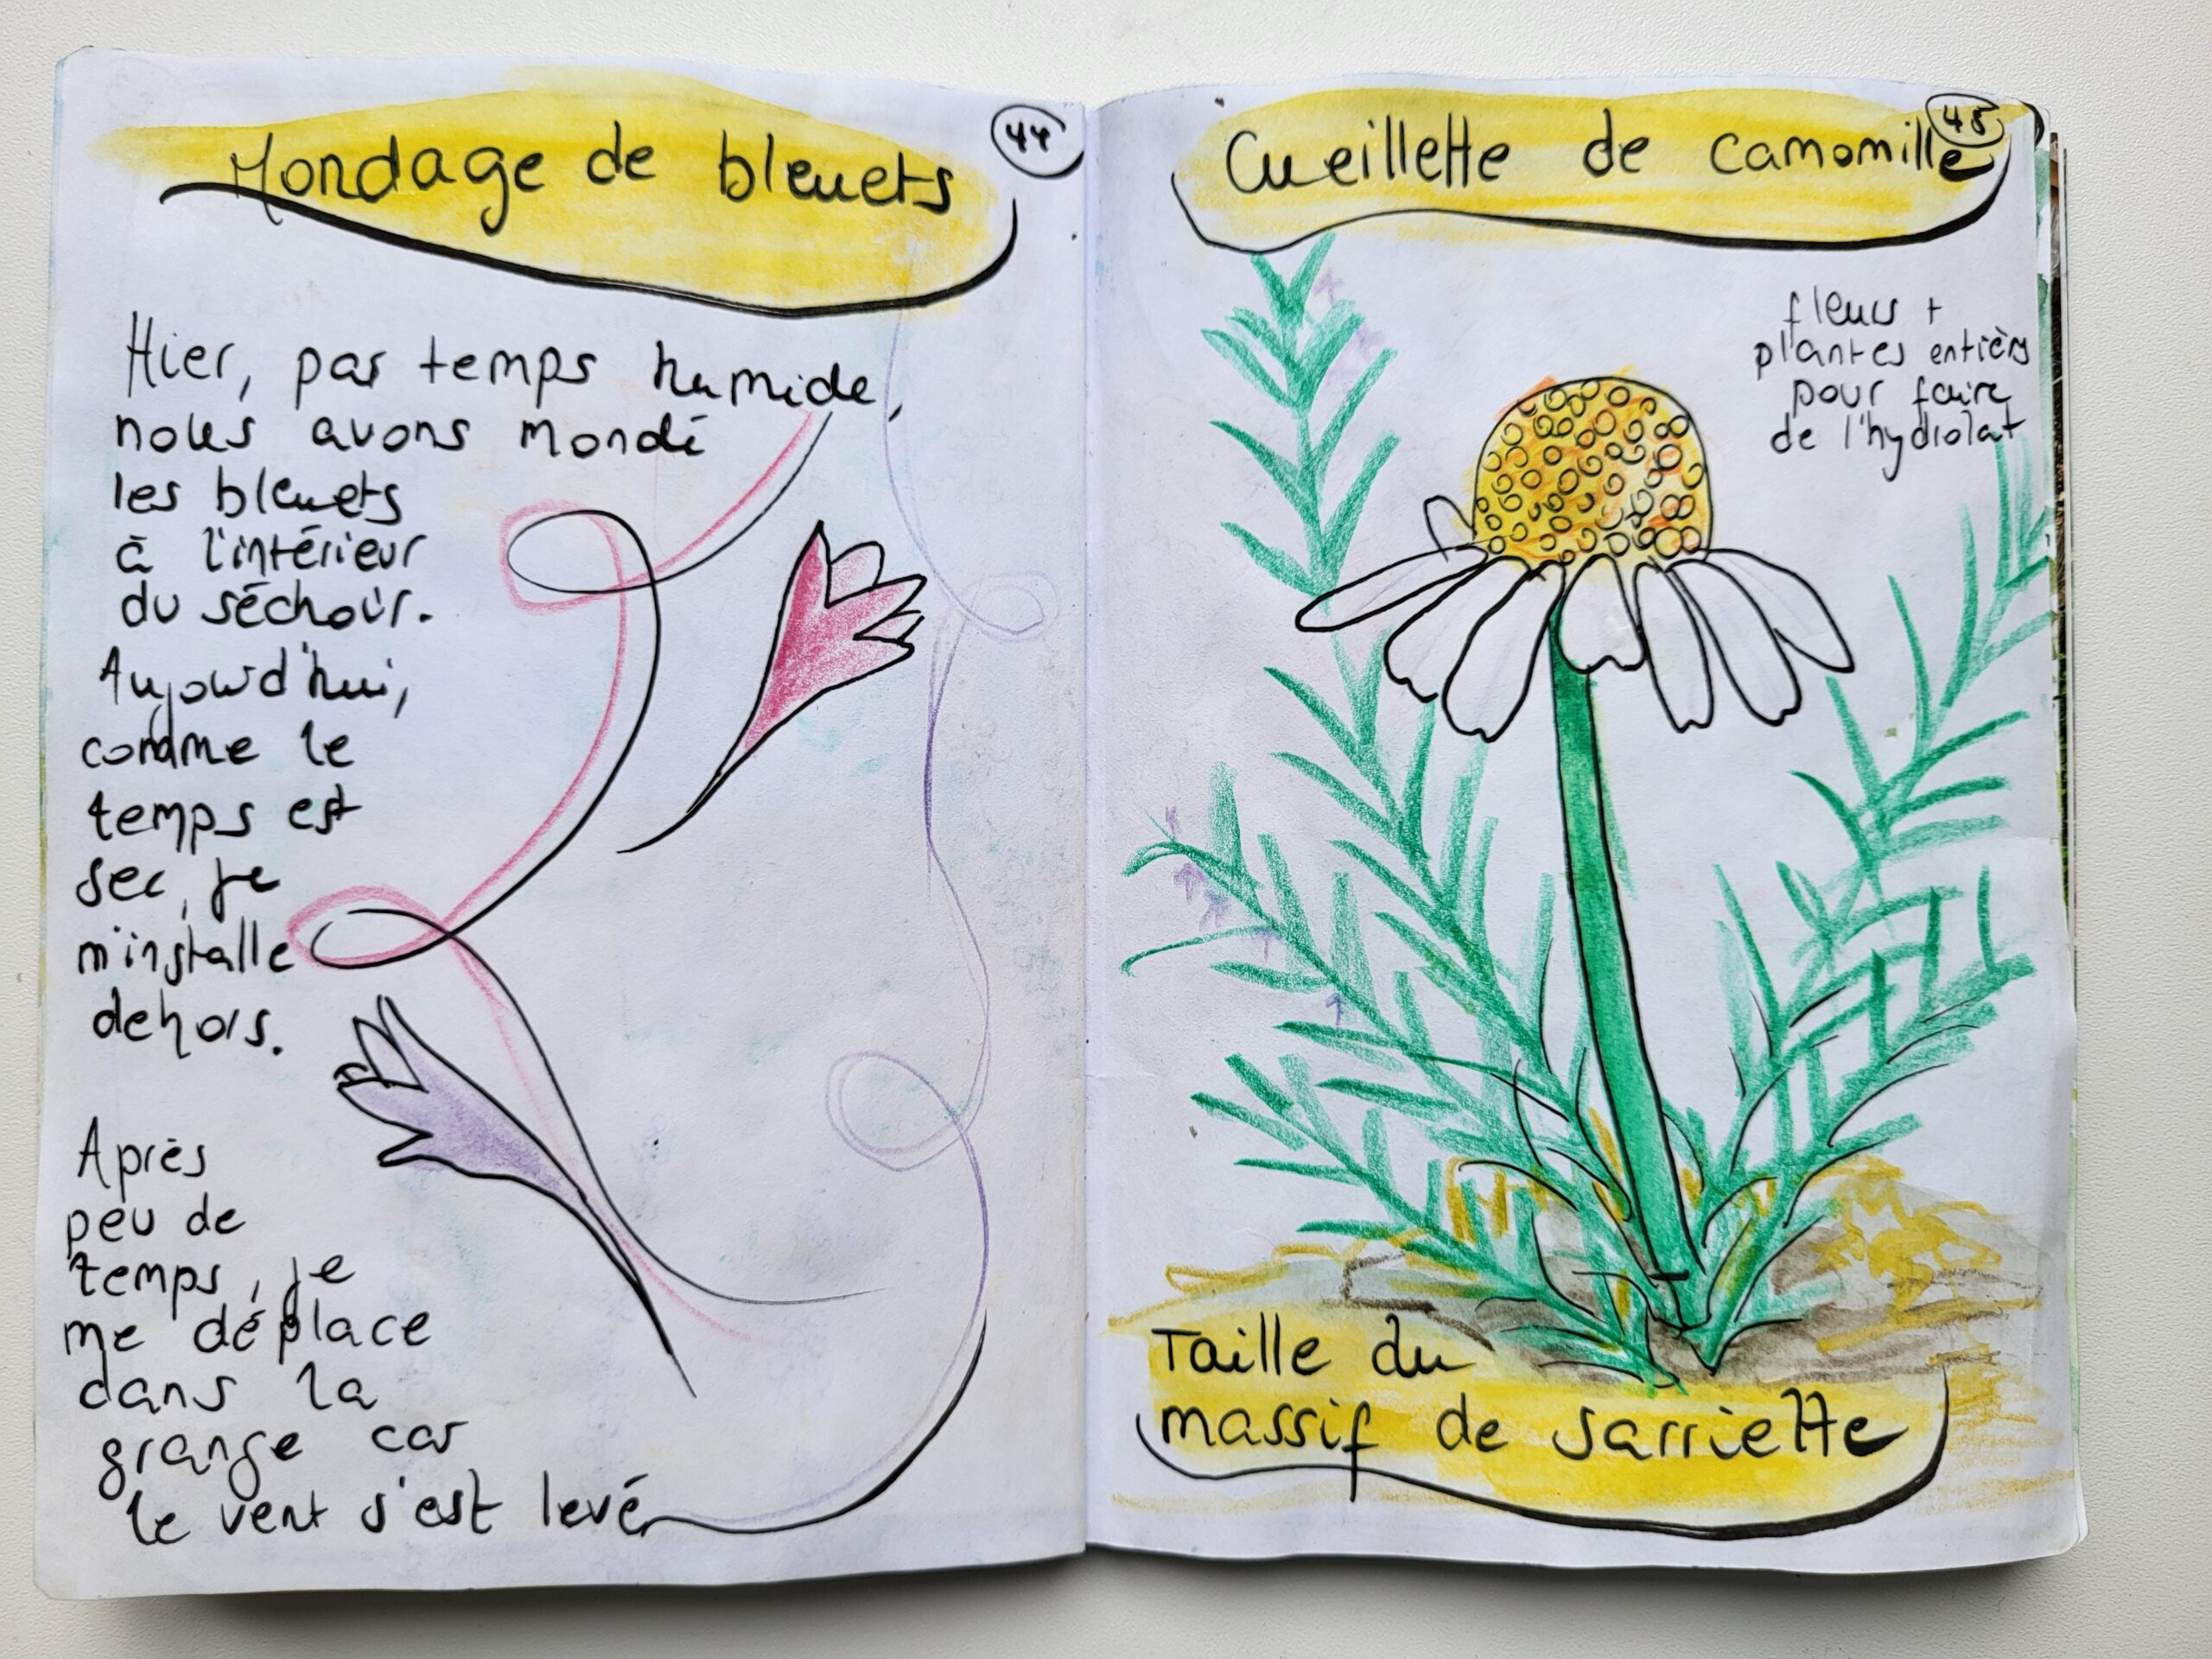 44
Mondage de bleuets
Hier, par temps humide,
nous avons mondé
les bleuets
à l'intérieur
du séchoir.
Aujourd'hui,
comme le
temps est
sec, je
m'installe
dehors.
Après
peu de
temps, je
me déplace
dans la
grange car
le vent s'est levé
45
Cueillette de camomille
fleurs +
plantes entières
pour faire
de l'hydrolat
Taille du
massif de sarriette